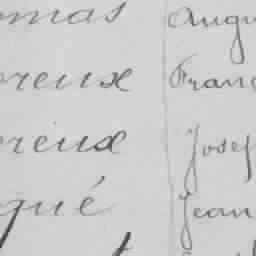 omas Augu
oreux Franç
orieux Josep
qué Jean